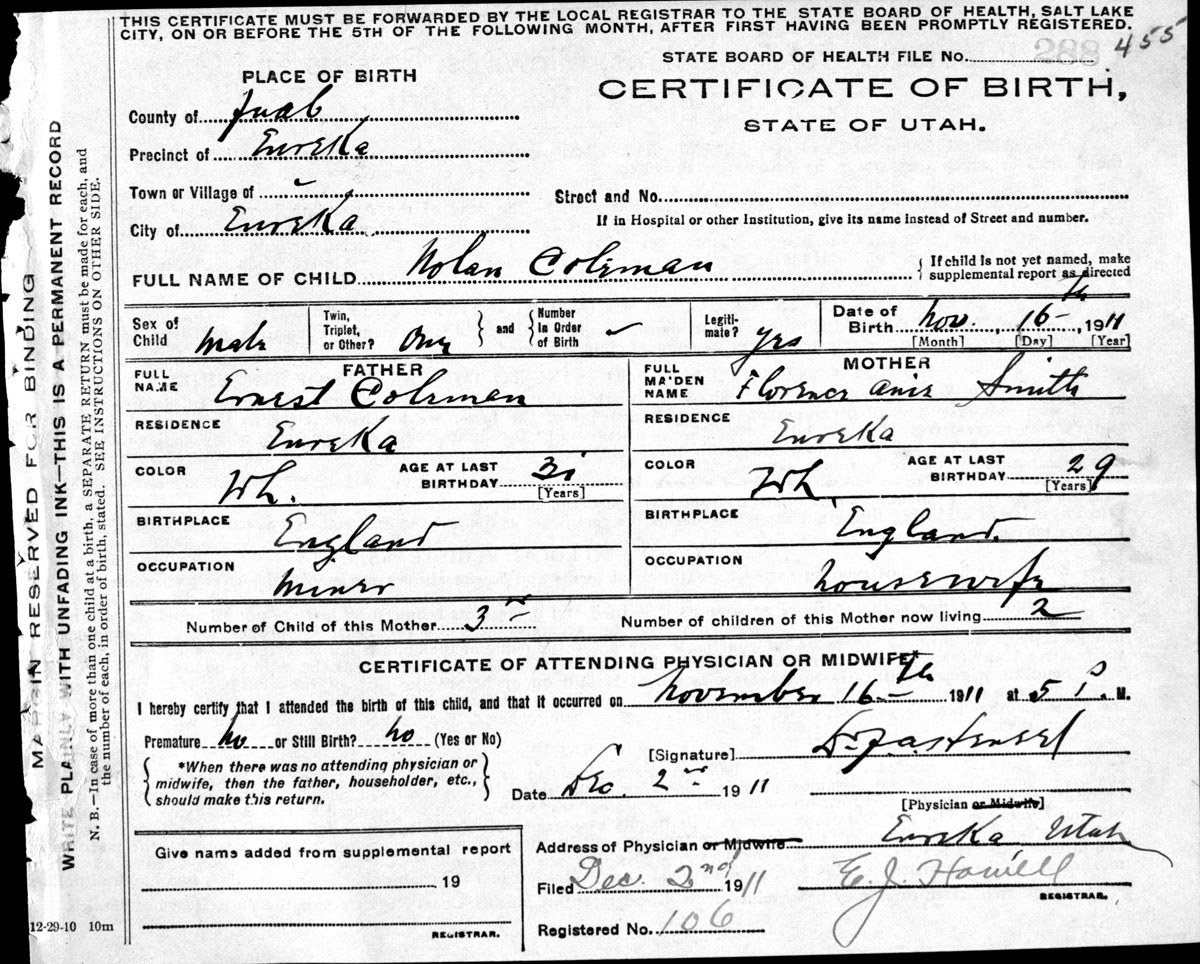 THIS CERTIFICATE MUST BE FORWARDED BY THE LOCAL REGISTRAR TO THE STATE BOARD OF HEALTH, SALT LAKE
CITY, ON OR BEFORE THE 5TH OF THE FOLLOWING MONTH, AFTER FIRST HAVING BEEN PROMPTLY REGISTERED.
STATE BOARD OF HEALTH FILE No. 288 455
PLACE OF BIRTH
CERTIFICATE OF BIRTH,
STATE OF UTAH.
County of Juab
Precinct of Eureka
Town or Village of
Street and No.
If in Hospital or other Institution, give its name instead of Street and number.
City of Eureka
FULL NAME OF CHILD Nolan Coleman
If child is not yet named, make
supplemental report as directed
Sex of Child Male
Twin, Triplet, or Other? One
and Number in Order of Birth
Legiti-mate? Yes
Date of Birth Nov. 16th 1911
[Month] [Day] [Year]
FATHER
FULL NAME Ernest Coleman
RESIDENCE Eureka
COLOR Wh. AGE AT LAST BIRTHDAY 31 [Years]
BIRTHPLACE England
OCCUPATION Miner
MOTHER
FULL MAIDEN NAME Florence Smith
RESIDENCE Eureka
COLOR Wh. AGE AT LAST BIRTHDAY 29 [Years]
BIRTHPLACE England.
OCCUPATION housewife
Number of Child of this Mother 3rd Number of children of this Mother now living 2
CERTIFICATE OF ATTENDING PHYSICIAN OR MIDWIFE*
I hereby certify that I attended the birth of this child, and that it occurred on November 16th 1911 at 5 P. M.
Premature no or Still Birth? no (Yes or No)
[Signature] Dr.
*When there was no attending physician or
midwife, then the father, householder, etc.,
should make this return.
Date Dec. 2nd 1911
[Physician or Midwife]
Address of Physician or Midwife Eureka Utah
Give name added from supplemental report
19
REGISTRAR.
Filed Dec. 2nd 1911 E. J. Howell
REGISTRAR.
Registered No. 106
12-29-10 10m
MARGIN RESERVED FOR BINDING
WRITE PLAINLY WITH UNFADING INK—THIS IS A PERMANENT RECORD
N. B.—In case of more than one child at a birth, a SEPARATE RETURN must be made for each, and
the number of each, in order of birth, stated. SEE INSTRUCTIONS ON OTHER SIDE.